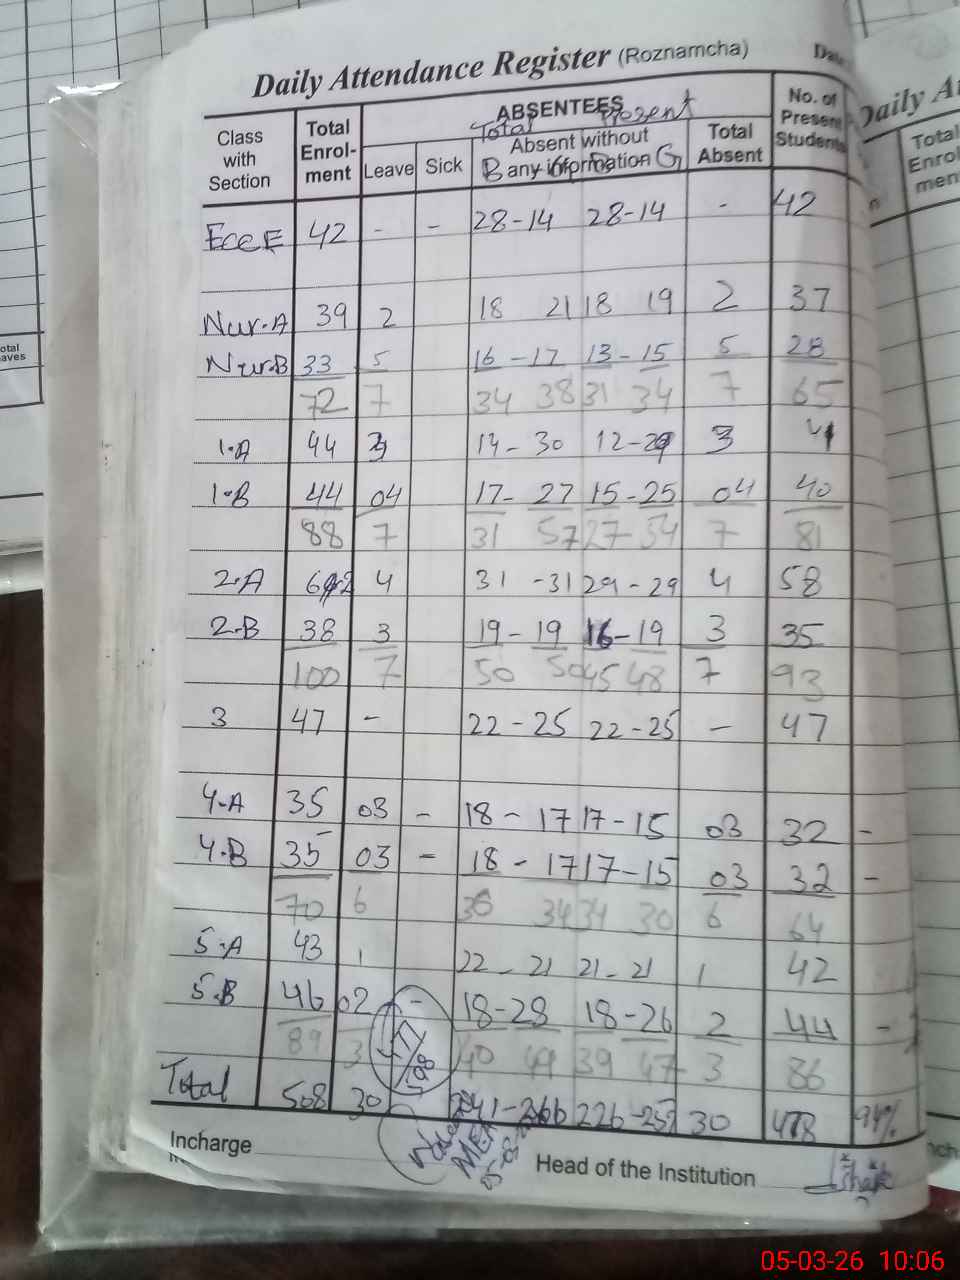 Daily Attendance Register (Roznamcha)
Class with Section
Total Enrol-ment
ABSENTEES
Total Present
Leave
Sick
Absent without any information
B G B G
Total Absent
No. of Present Students
Ece E 42 - - 28-14 28-14 - 42
Nur.A 39 2 18 21 18 19 2 37
Nur.B 33 5 16-17 13-15 5 28
72 7 34 38 31 34 7 65
1.A 44 3 14-30 12-29 3 41
1.B 44 04 17-27 15-25 04 40
88 7 31 57 27 54 7 81
2.A 62 4 31-31 29-29 4 58
2.B 38 3 19-19 16-19 3 35
100 7 50 50 45 48 7 93
3 47 - 22-25 22-25 - 47
4.A 35 03 - 18-17 17-15 03 32 -
4.B 35 03 - 18-17 17-15 03 32 -
70 6 36 34 34 30 6 64
5.A 43 1 22-21 21-21 1 42
5.B 46 02 - 18-28 18-26 2 44 -
89 3 40 49 39 47 3 86
Total 508 30 241-266 226-251 30 478 94%
Incharge
Head of the Institution
Daily
Total Enrol ment
otal
aves
05-03-26 10:06